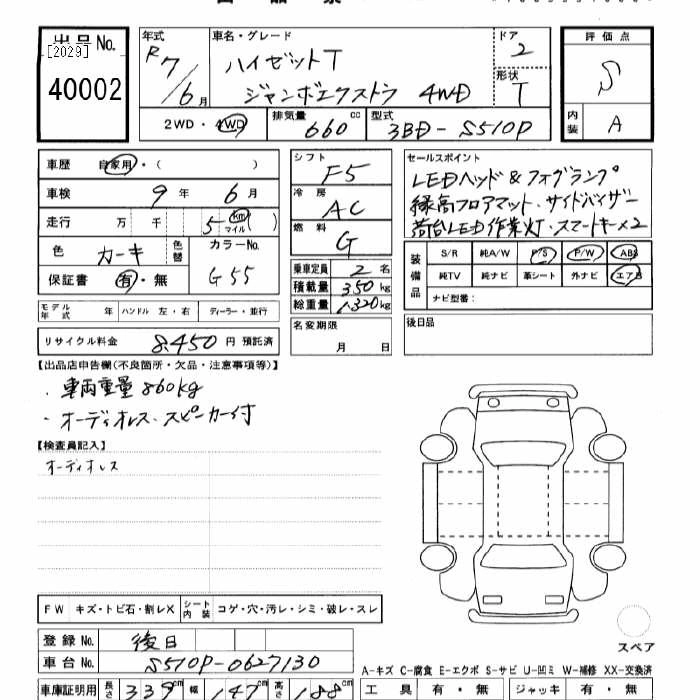 出品No.
[2029]
40002
年式 R7/6月
車名・グレード
ハイゼットT
ジャンボエクストラ 4WD
ドア 2
形状 T
2WD・4WD
排気量 660cc
型式 3BD-S510P
評価点
S
内装 A
車歴 自家用・( )
車検 9年 6月
走行 万 千 5 km マイル ( )
色 カーキ 色替 カラーNo.
保証書 有・無 G55
シフト F5
冷房 AC
燃料 G
乗車定員 2名
積載量 350kg
総重量 1,320kg
名変期限
月 日
セールスポイント
LEDヘッド&フォグランプ
緑高フロアマット・サイドバイザー
荷台LED作業灯・スマートキー×2
装備品 S/R 純A/W P/S P/W ABS
純TV 純ナビ 革シート 外ナビ エアB
ナビ型番:
後日品
モデル年式 年 ハンドル 左・右 ディーラー・並行
リサイクル料金 8,450円 預託済
【出品店申告欄(不良箇所・欠品・注意事項等)】
・車両重量860kg
・オーディオレス・スピーカー付
【検査員記入】
オーディオレス
FW キズ・トビ石・割レX シート内装 コゲ・穴・汚レ・シミ・破レ・スレ
登録No. 後日
車台No. S510P-0627130
車庫証明用 長さ 339cm 幅 147cm 高さ 188cm
スペア
A-キズ C-腐食 E-エクボ S-サビ U-凹ミ W-補修 XX-交換済
工具 有・無 ジャッキ 有・無